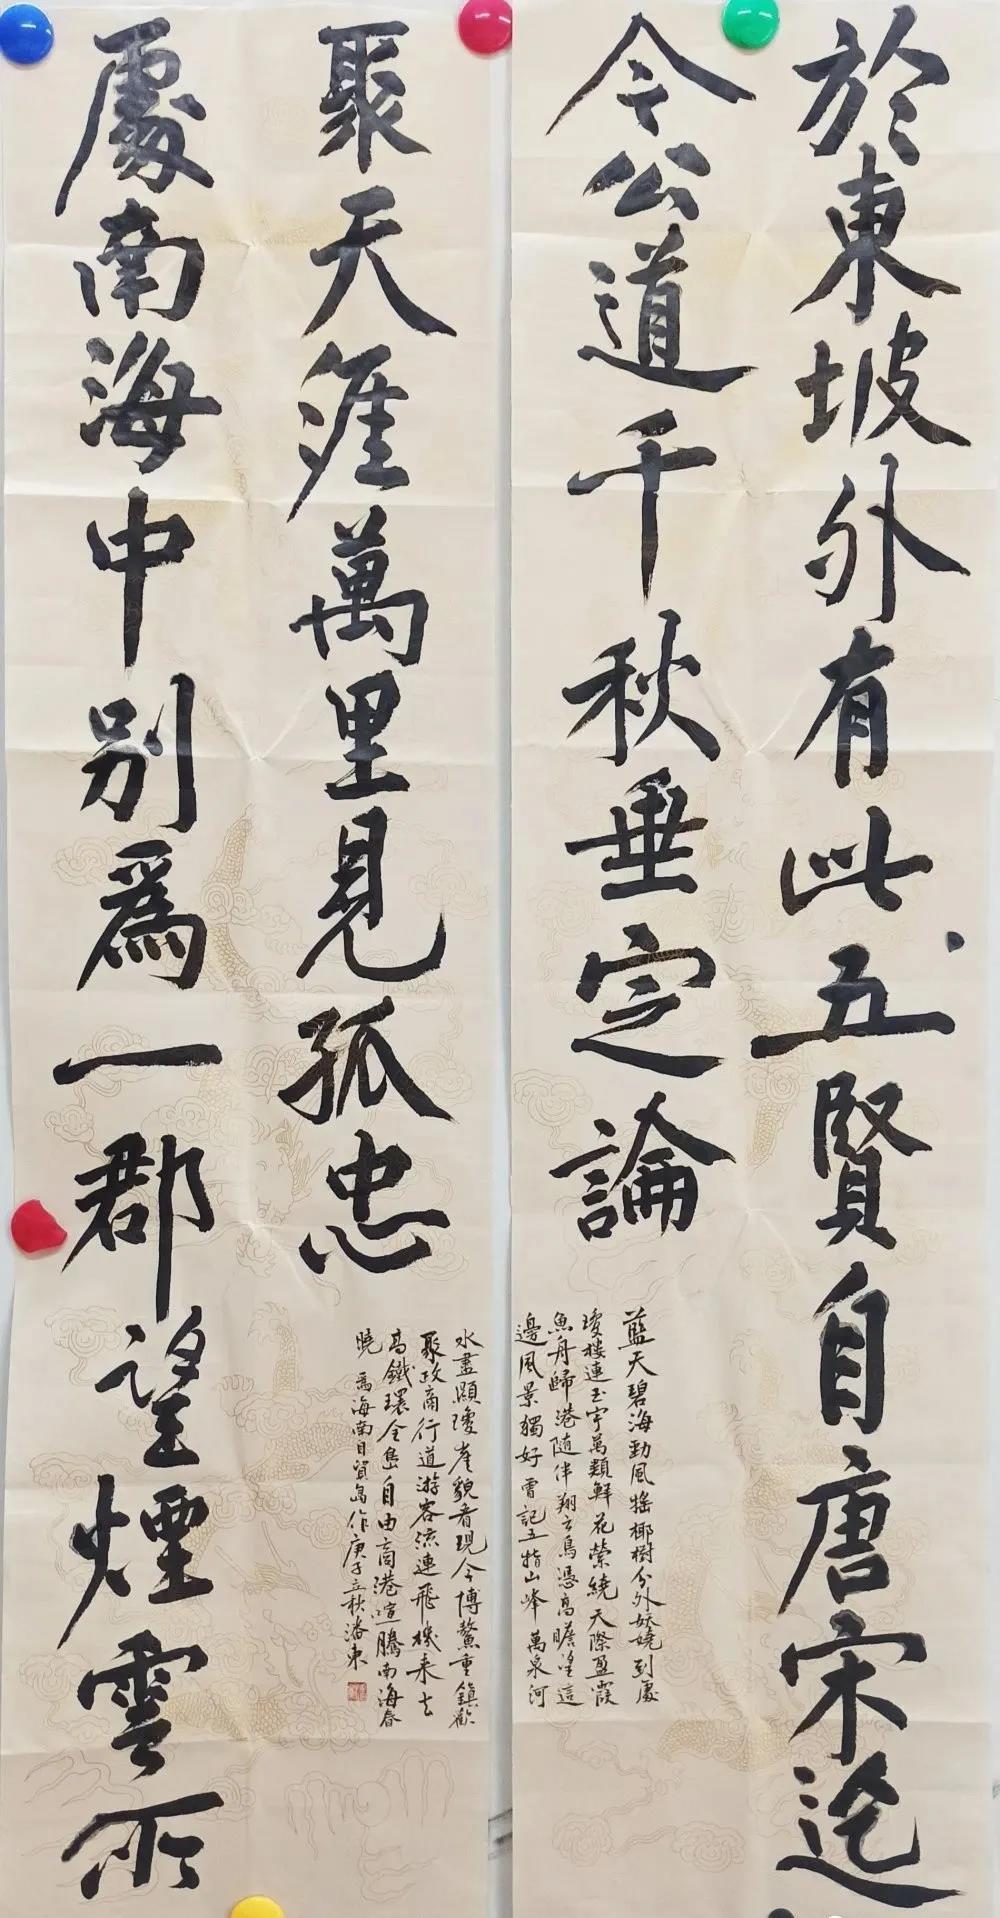 於東坡外有此五賢自唐宋迄
今公道千秋垂定論
藍天碧海勁風摇椰樹分外妖嬈到處
瓊楼連玉宇萬類鮮花縈繞天際盈霞
魚舟歸港隨伴翔雲鳥憑高瞻望這
邊風景獨好曾記五指山峰萬泉河
處南海中别爲一郡望煙雲所
聚天涯萬里見孤忠
水盡顯瓊崖貌看現今博鰲重鎮歡
聚政商行道游客流連飛機來去
高鐵環全島自由商港喧騰南海春
曉為海南自貿島作庚子立秋潘東